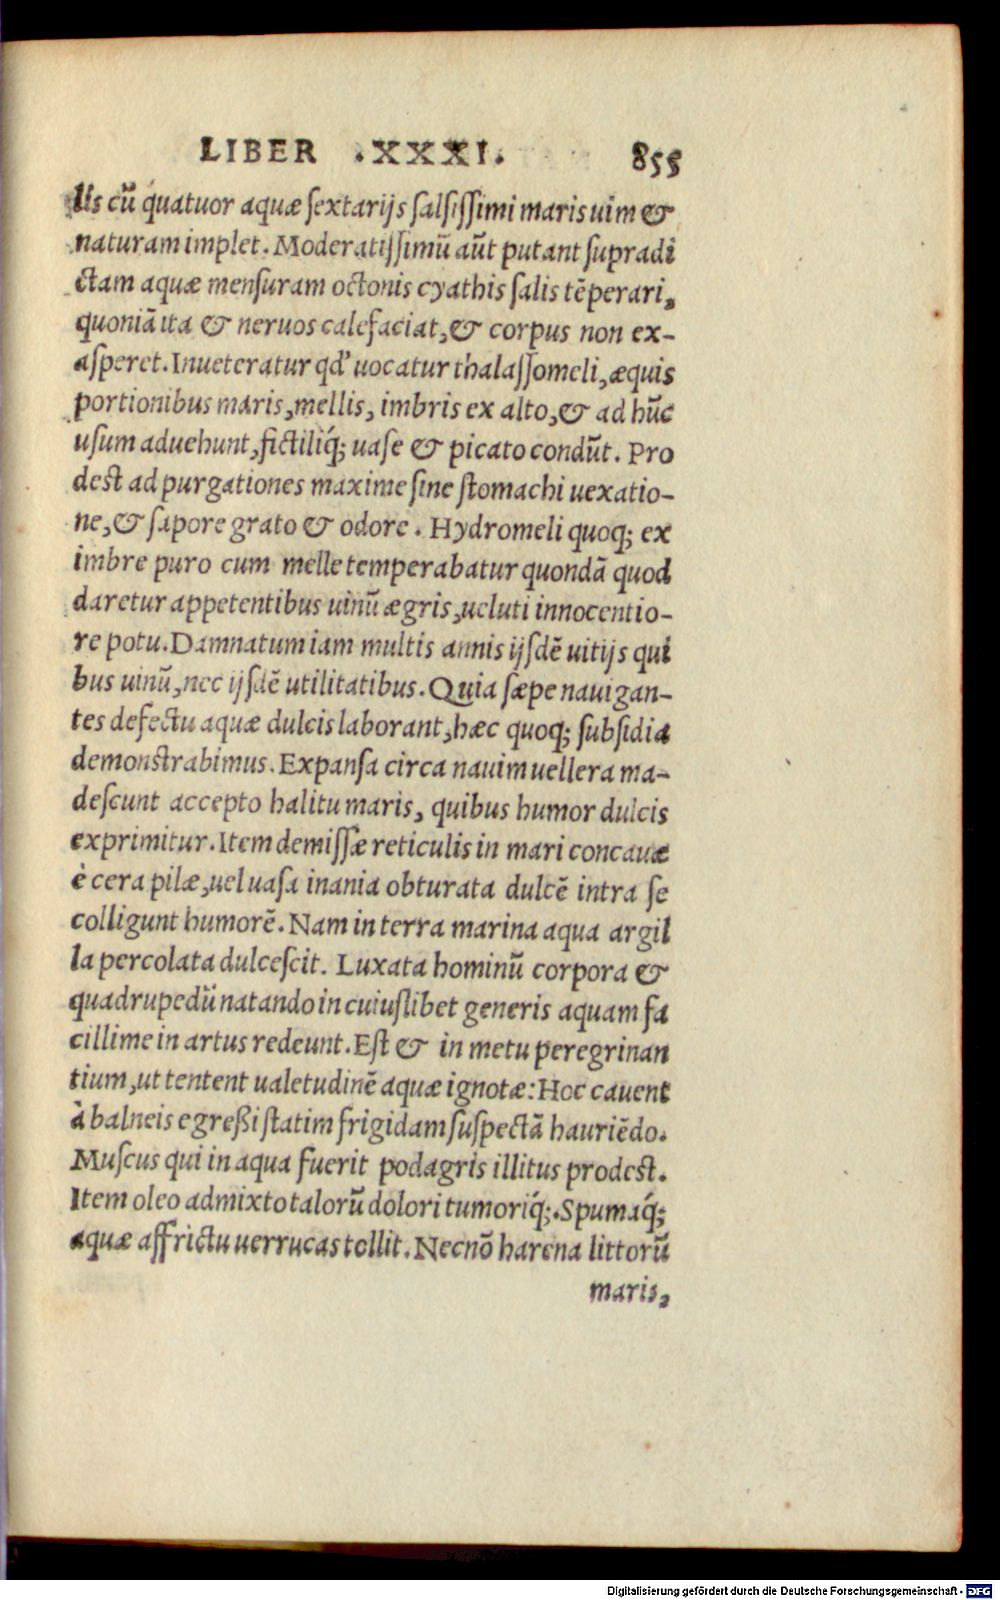 LIBER .XXXI. 855
lis cũ quatuor aquæ ſextarijs ſalſiſſimi maris uim &
naturam implet. Moderatiſſimũ aũt putant ſupradi
ctam aquæ menſuram octonis cyathis ſalis tẽperari,
quoniã ita & neruos calefaciat,& corpus non ex-
aſperet. Inueteratur qd' uocatur thalaſſomeli, æquis
portionibus maris, mellis, imbris ex alto,& ad hũc
uſum aduehunt, fictiliq́; uaſe & picato condũt. Pro
deſt ad purgationes maxime ſine ſtomachi uexatio-
ne,& ſapore grato & odore. Hydromeli quoq; ex
imbre puro cum melle temperabatur quondã quod
daretur appetentibus uinũ ægris, ueluti innocentio-
re potu. Damnatum iam multis annis ijſdẽ uitijs qui
bus uinũ, nec ijſdẽ utilitatibus. Quia ſæpe nauigan-
tes defectu aquæ dulcis laborant, hæc quoq; ſubſidia
demonſtrabimus. Expanſa circa nauim uellera ma-
deſcunt accepto halitu maris, quibus humor dulcis
exprimitur. Item demiſſæ reticulis in mari concauæ
è cera pilæ, uel uaſa inania obturata dulcẽ intra ſe
colligunt humorẽ. Nam in terra marina aqua argil
la percolata dulceſcit. Luxata hominũ corpora &
quadrupedũ natando in cuiuſlibet generis aquam fa
cillime in artus redeunt. Eſt & in metu peregrinan
tium, ut tentent ualetudinẽ aquæ ignotæ: Hoc cauent
à balneis egreßi ſtatim frigidam ſuſpectã hauriẽdo.
Muſcus qui in aqua fuerit podagris illitus prodeſt.
Item oleo admixto talorũ dolori tumoriq́;. Spumaq́;
aquæ affrictu uerrucas tollit. Necnõ harena littorũ
maris,
Digitalisierung gefördert durch die Deutsche Forschungsgemeinschaft - DFG